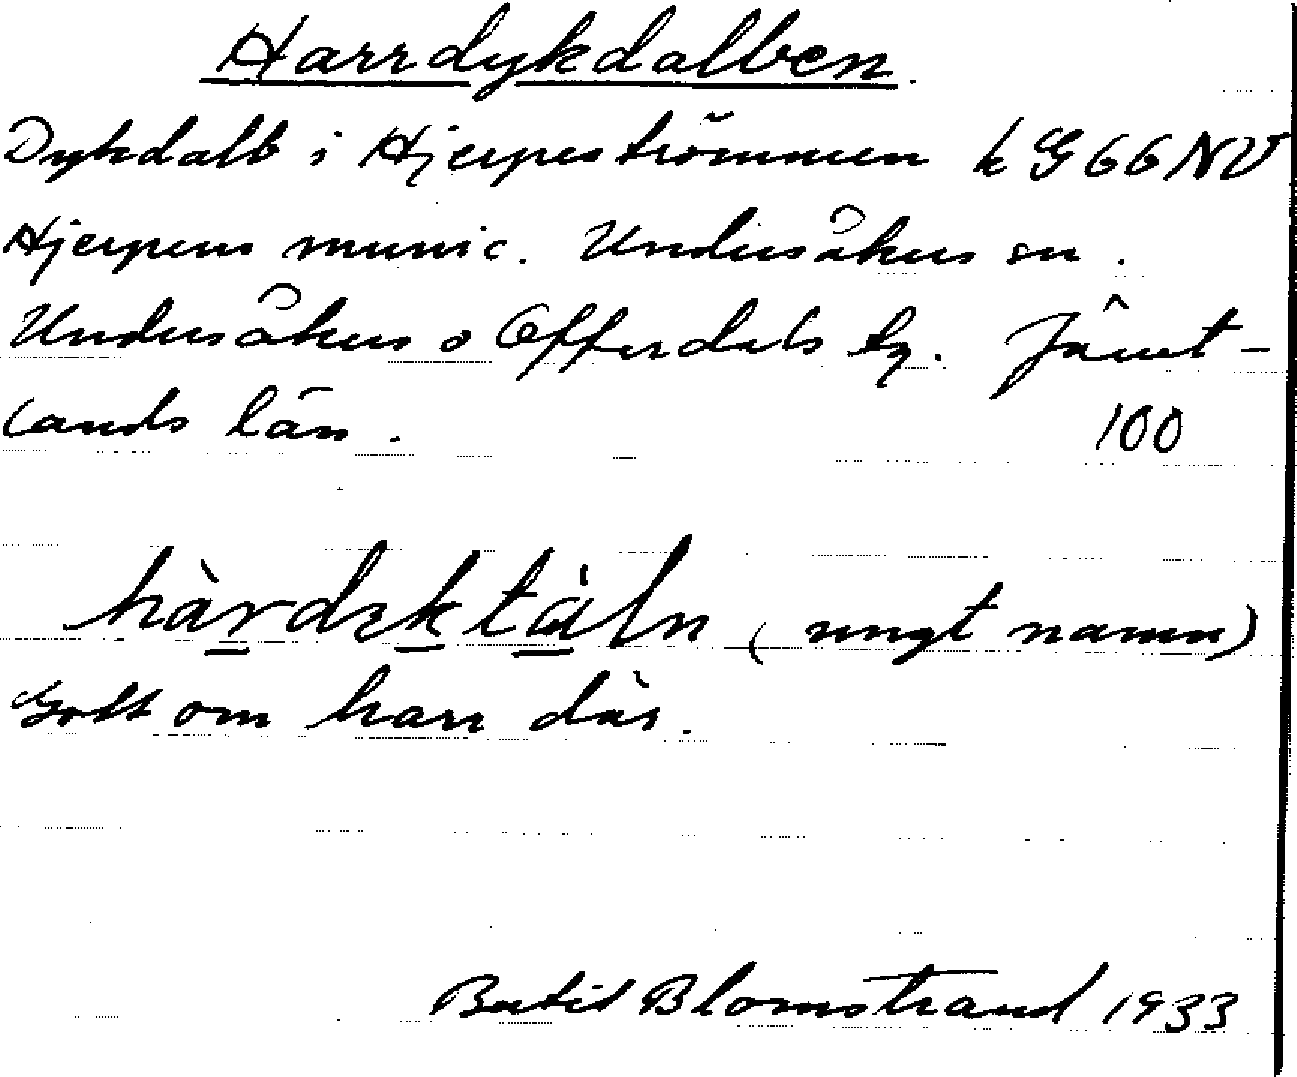 Harrdykdalben.
Dykdalb i Hjerpeströmmen k G 66 NV
Hjerpens munic. Undersåkers sn.
Undersåkers o Offerdals tg. Jämt-
lands län. 100
hàrdyktàln (ungt namn)
Gott om harr där.
Bertil Blomstrand 1933